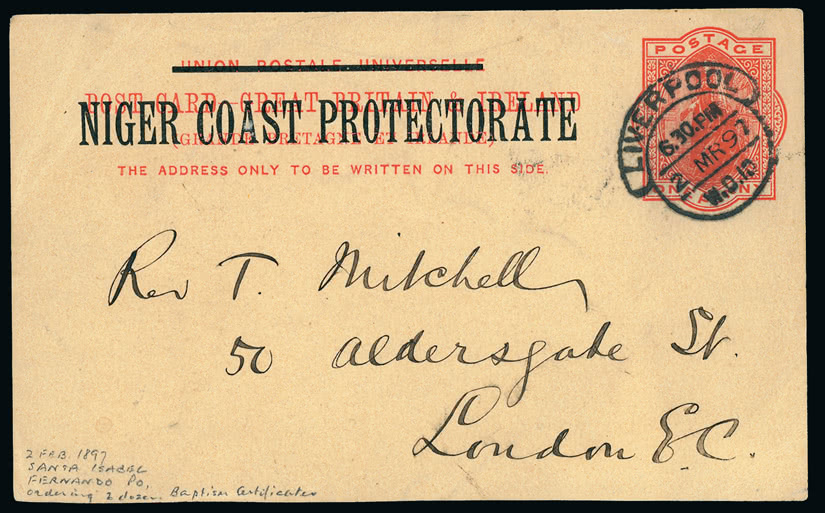 UNION POSTALE UNIVERSELLE
POST CARD GREAT BRITAIN & IRELAND
NIGER COAST PROTECTORATE
(GRANDE BRETAGNE ET IRLANDE)
THE ADDRESS ONLY TO BE WRITTEN ON THIS SIDE.
POSTAGE
ONE PENNY
LIVERPOOL
6.30.PM
MR 97
Rev T. Mitchell
50 Aldersgate St.
London E.C.
2 FEB. 1897
SANTA ISABEL
FERNANDO PO,
ordering 2 dozen Baptism Certificates